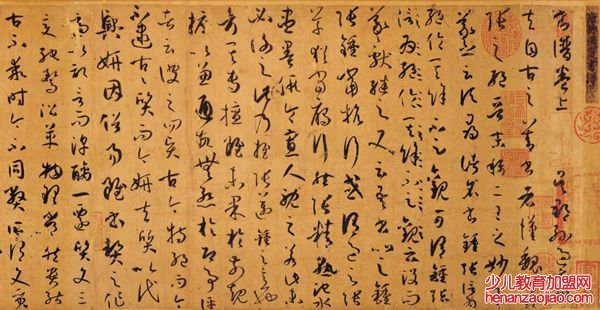 書譜卷上 吳郡孫過庭
夫自古之善書者漢魏有鍾
張之絕晉末稱二王之妙王
羲之云頃尋諸名書鍾張信為
絕倫其餘不足觀可謂鍾張
信為絕倫其餘不足觀云沒而
羲獻繼之又云吾書比之鍾
張鍾當抗行或謂過之張
草猶當雁行然張精熟池水
盡墨假令寡人耽之若此未
必謝之此乃推張邁鍾之意也
考其專擅雖未果於前規
摭以兼通故無慚於即事評
者云彼之四賢古今特絕而今
不逮古古質而今妍夫質以代
興妍因俗易雖書契之作
適以記言而淳醨一遷質文三
變馳鶩沿革物理常然貴能
古不乖時今不同弊所謂文質
少儿教育加盟网
henanzaojiao.com